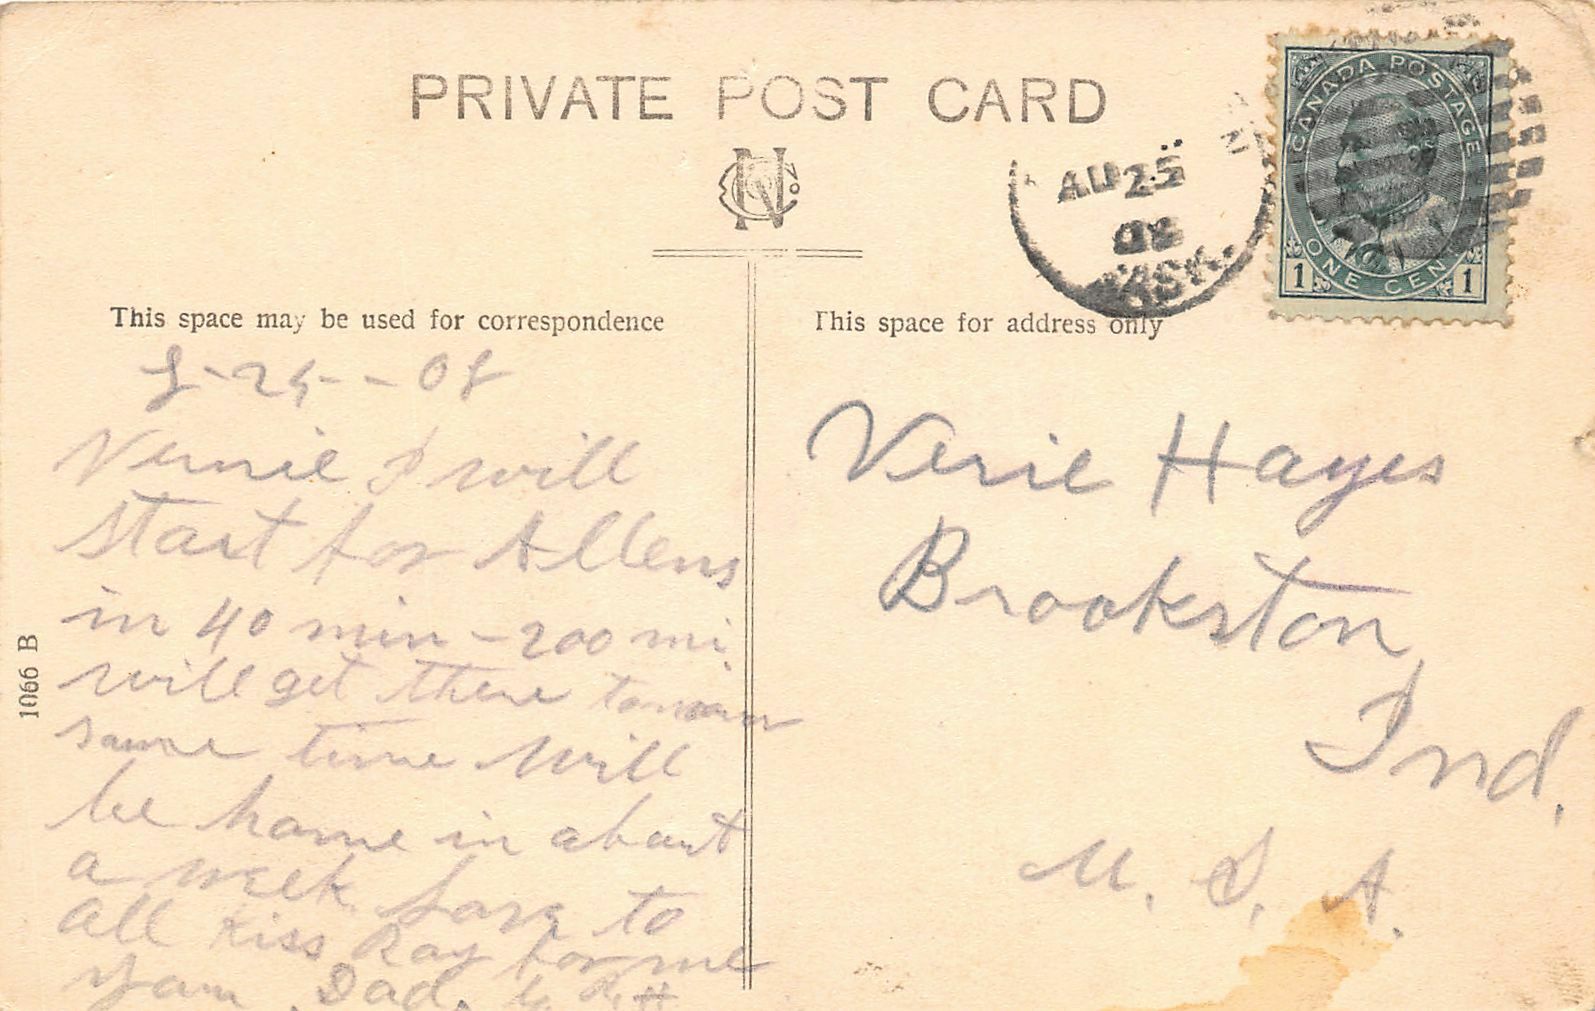 PRIVATE POST CARD
CANADA POSTAGE
ONE CENT
1 1
AU 25
08
SASK.
This space may be used for correspondence
This space for address only
8-25--08
Vernie I will
start for Allens
in 40 min - 200 mi.
will get there tomorrow
same time Will
be home in about
a week. Love to
all Kiss Ray for me
Your Dad.
1066 B
Verie Hayes
Brookston,
Ind.
U. S. A.